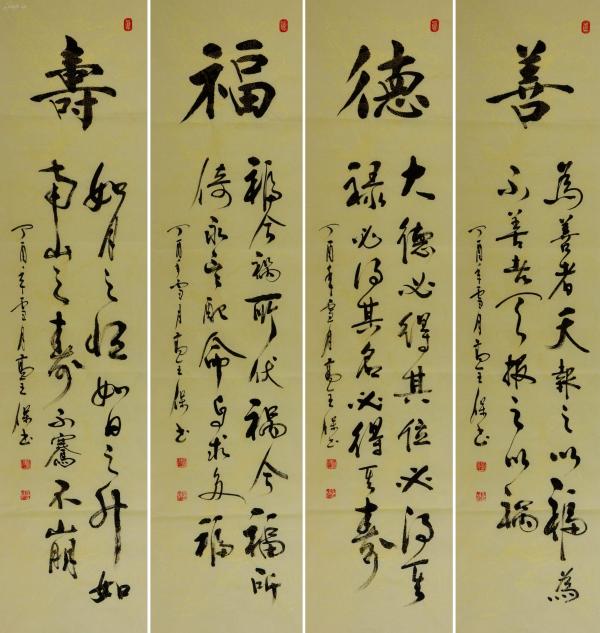 善
為善者天報之以福為
不善者天報之以禍
丁酉年雪月高玉保书
德
大德必得其位必得其
禄必得其名必得其壽
丁酉年雪月高玉保书
福
福兮禍所伏禍兮福所
倚永言配命自求多福
丁酉年雪月高玉保书
壽
如月之恒如日之升如
南山之壽不騫不崩
丁酉年雪月高玉保书